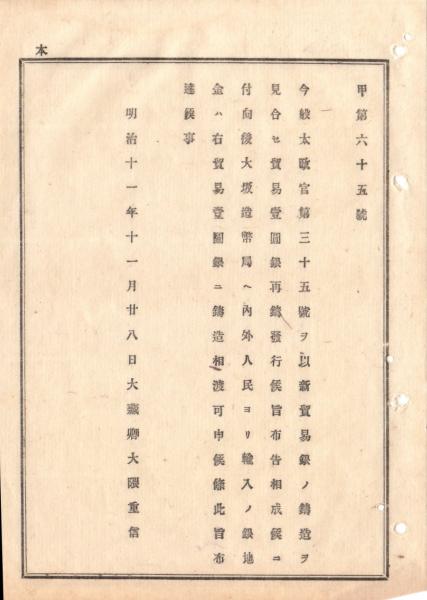 本
甲第六十五號
今般太政官第三十五號ヲ以新貿易銀ノ鑄造ヲ
見合セ貿易壹圓銀再鑄發行候旨布告相成候ニ
付向後大坂造幣局ヘ內外人民ヨリ輸入ノ銀地
金ハ右貿易壹圓銀ニ鑄造相渡可申候條此旨布
達候事
明治十一年十一月廿八日大藏卿大隈重信